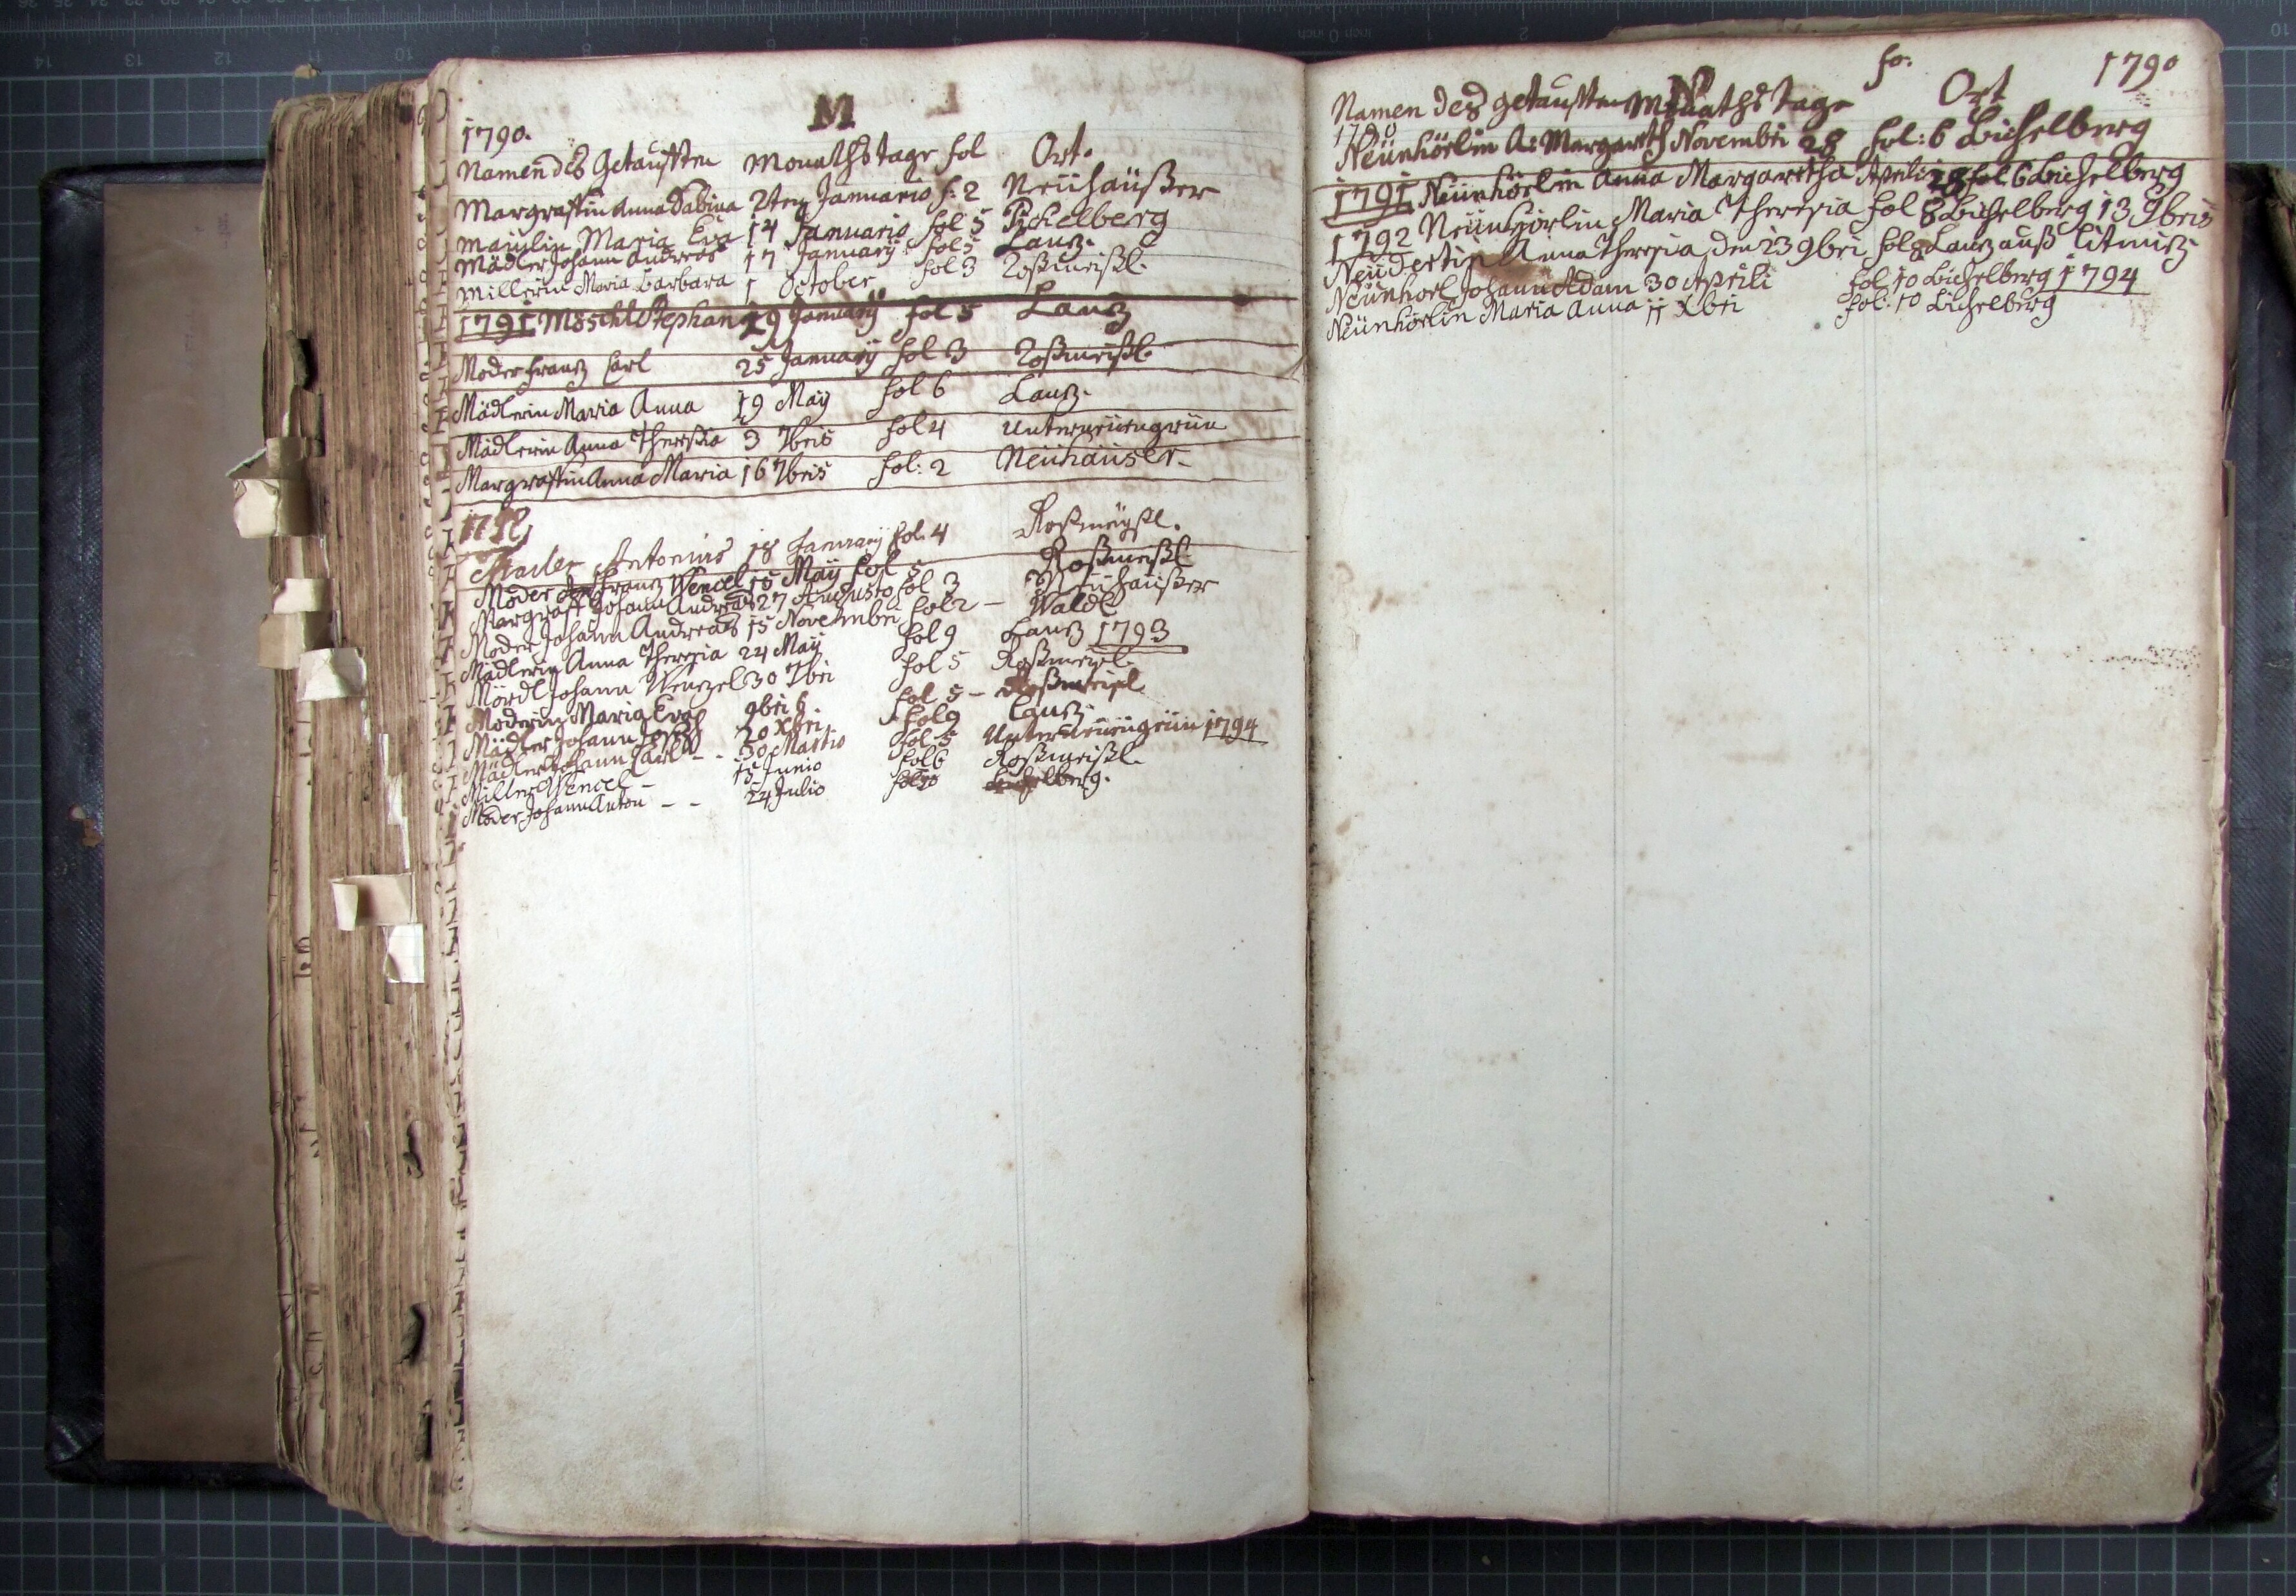 M
1790.
Namen des Getaufften Monathstage fol Ort.
Margraffin Anna Sabina 2ten Januario f: 2 Neuhaüßer
Maiulin Maria Eva 14 Januario fol 5 Pichelberg
Mädler Johann Andreas 17 Januarÿ fol 5 Lanz.
Millerin Maria Barbara 1 October fol 3 Roßmeißl.
1791 Möschl Stephan 19 Januarÿ fol 5 Lanz
Moder Franz Carl 25 Januarÿ fol 3 Roßmeißl.
Mädlerin Maria Anna 19 Maÿ fol 6 Lanz.
Mädlerin Anna Theresia 3 7bris fol 4 Unterneuengrün
Margraffin Anna Maria 16 7bris fol: 2 Neuhäuser
1792
Antonius 18 Januarÿ fol. 4 Roßmeyßl.
Moder Franz Wencel 15 Maÿ fol 5 Roßmeißl
Margraff Johann Andreas 27 Augusto fol 3 Neuhaüßer
Moder Johann Andreas 15 Novembri fol 2 – Waldl
Mädlerin Anna Theresia 24 Maÿ fol 9 Lanz 1793
Mördl Johann Wenzel 30 7bri fol 5 Roßmeisl.
Moderin Maria Eva 9bri 6 fol 5 – Roßmeisl.
Mädler Johann Joseph 20 Xbri fol 9 Lanz.
Mädler Johann Carl – – 30 Martio fol 5 Unterneuengrün 1794
Miller Wencel – 15 Junio fol 6 Roßmeißl.
Moder Johann Anton – – 24 Julio fol 10 Lichelberg.
N
fo: 1790
Namen des getaufften Monaths tage Ort
1790
Neünhörlin A: Margareth Novembri 28 fol: 6 Lichelberg
1791 Neünhörlin Anna Margaretha Aprili 28 fol 6 Lichelberg
1792 Neünhörlin Maria Theresia fol 8 Lichelberg 13 9bris
Neüdertin Anna Theresia den 23 9bri fol 8 Lanz auß Litmitz
Neünhorl Johann Adam 30 Aprili fol 10 Lichelberg 1794
Neünhörlin Maria Anna 11 Xbri fol: 10 Lichelberg